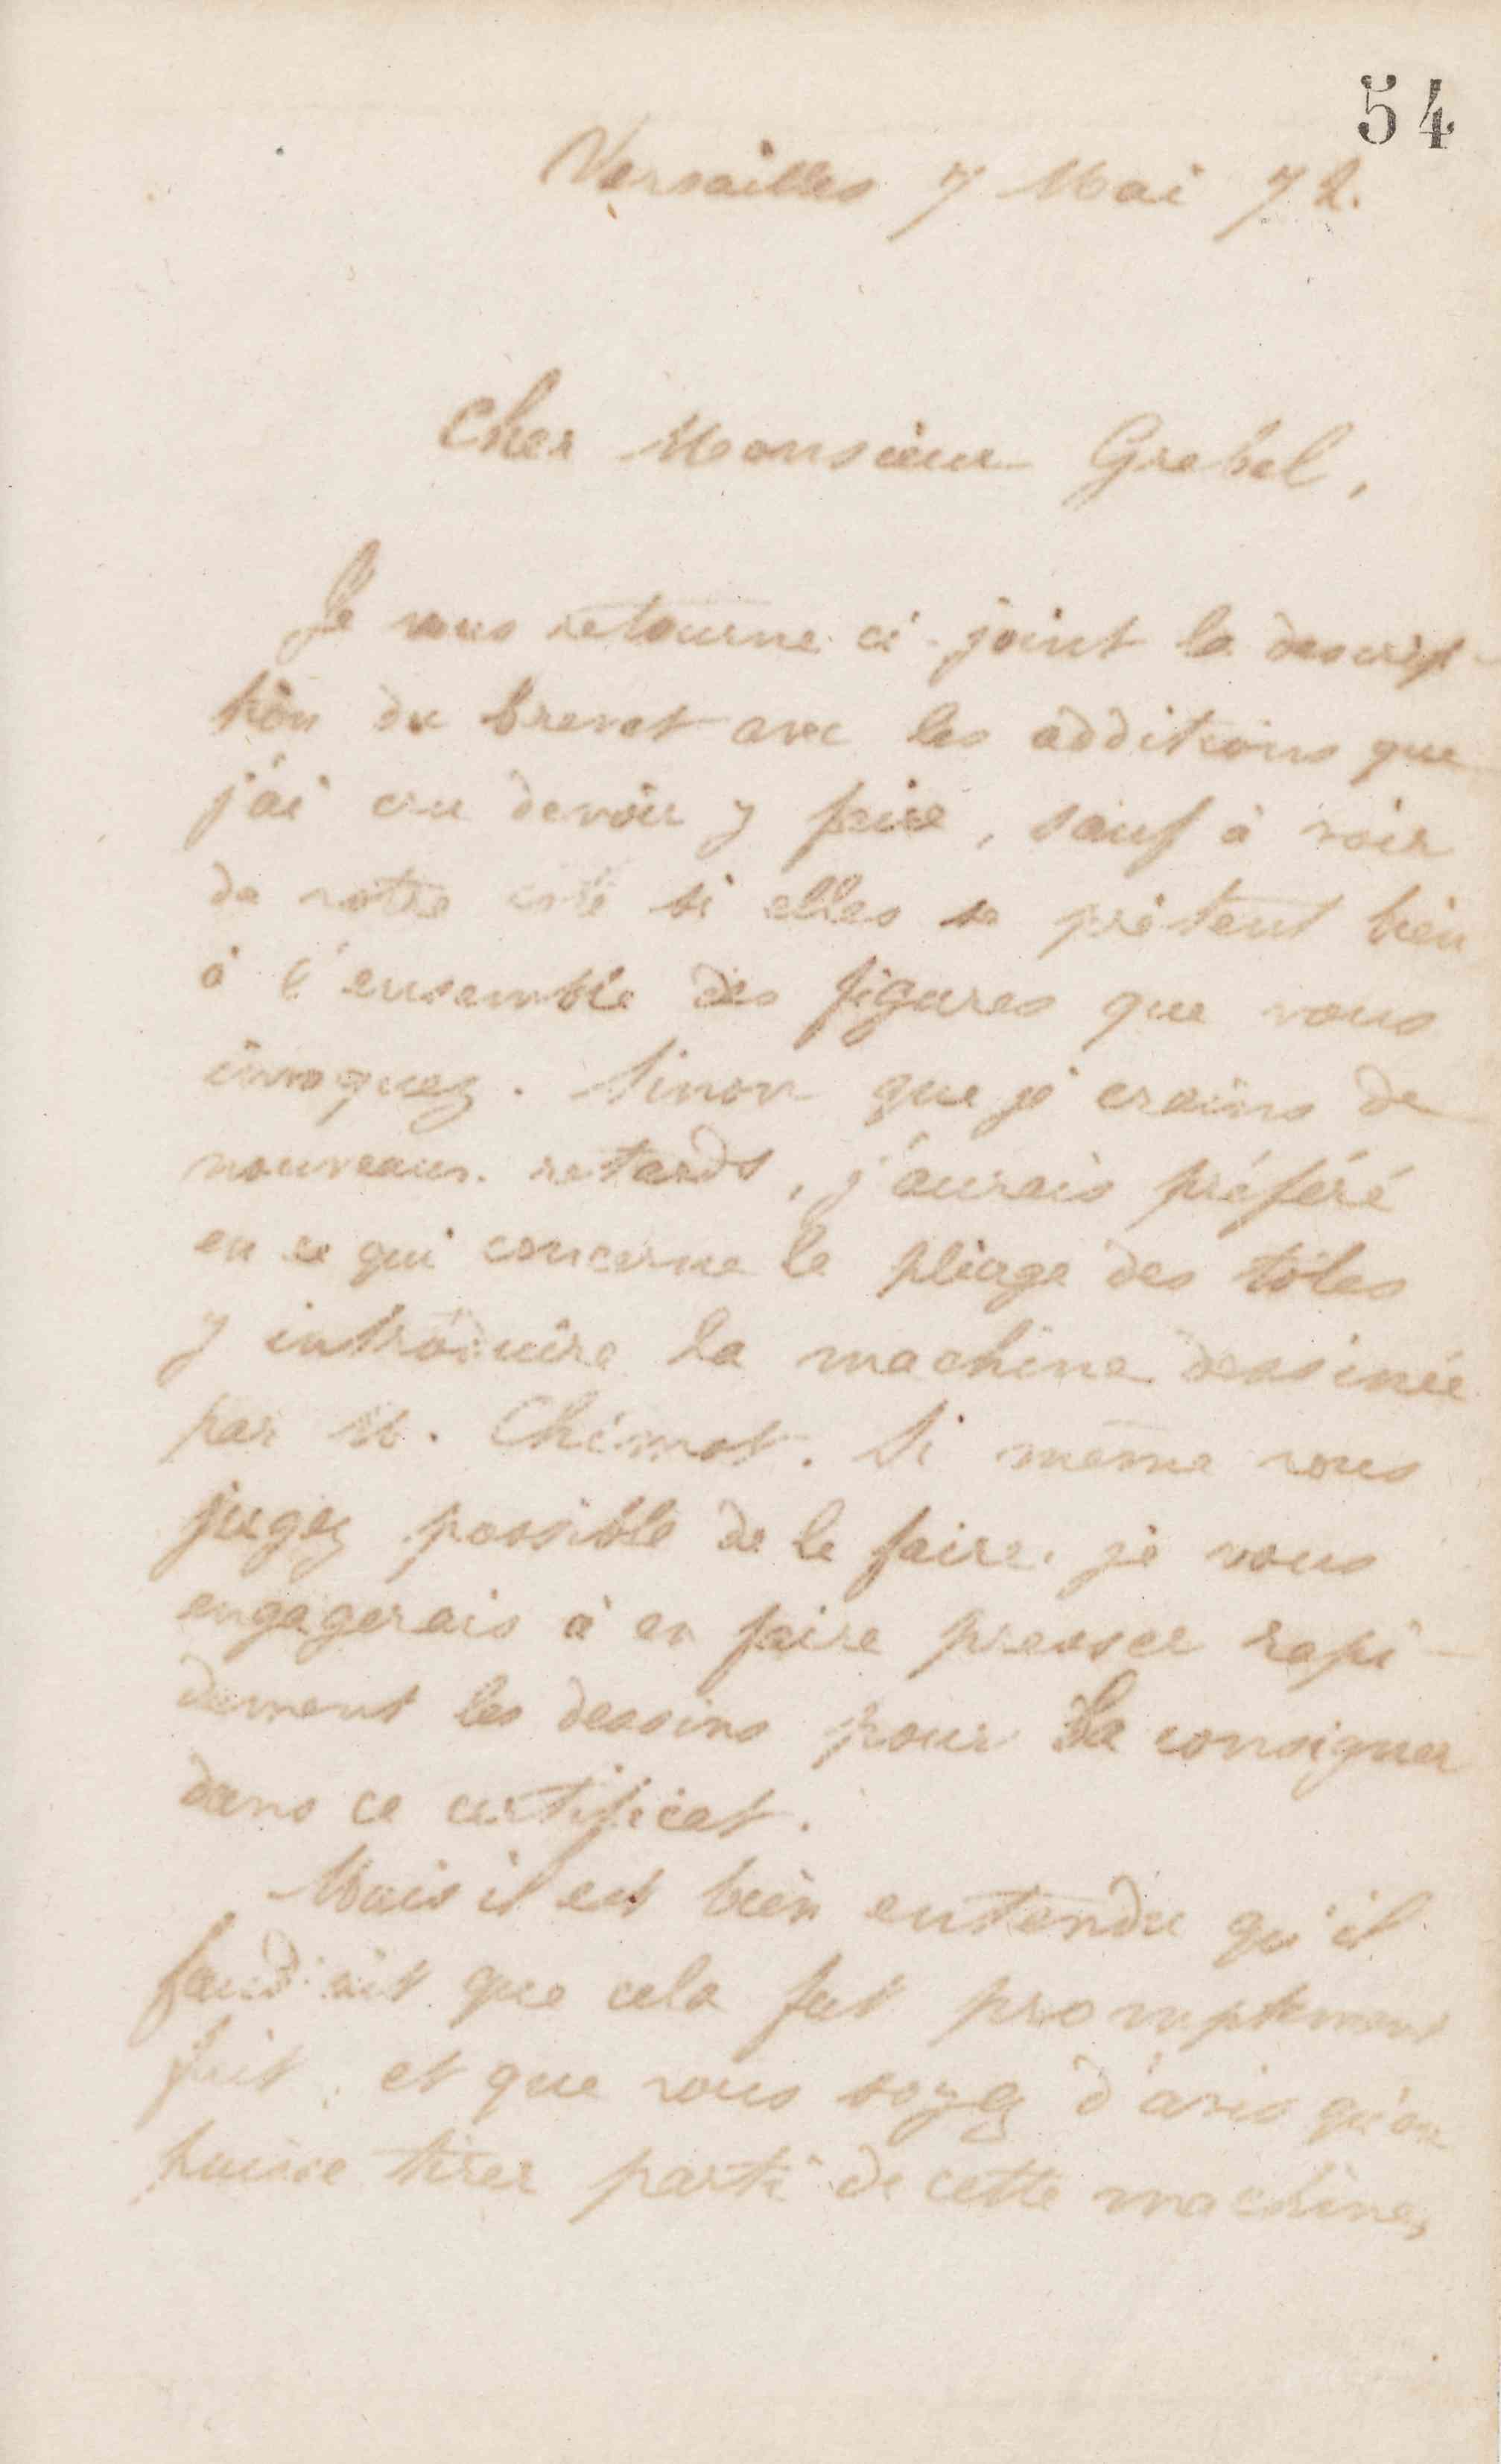 54
Versailles 7 Mai 72.
Cher Monsieur Grebel,
Je vous retourne ci-joint la descrip-
tion du brevet avec les additions que
j'ai cru devoir y faire, sauf à voir
de votre côté si elles se prêtent bien
à l'ensemble des figures que vous
invoquez. Sinon que je crains de
nouveaux retards, j'aurais préféré
en ce qui concerne le pliage des tôles
y introduire la machine dessinée
par M. Chimot. Si même vous
jugez possible de le faire, je vous
engagerais à en faire presser rapi-
dement les dessins pour la consigner
dans ce certificat.
Mais il est bien entendu qu'il
faudrait que cela fut promptement
fait, et que vous soyez d'avis qu'on
puisse tirer parti de cette machine,